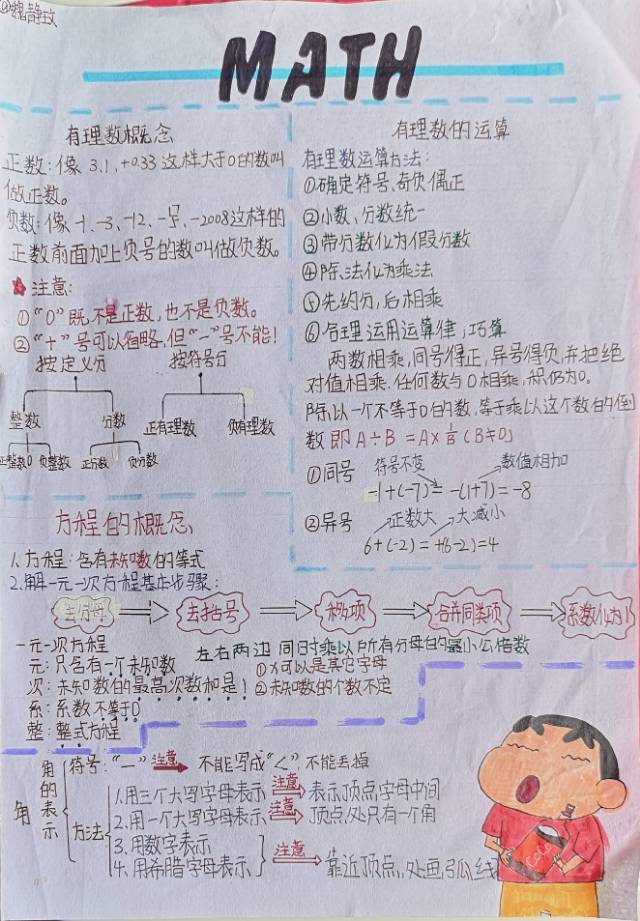 魏静玟
MATH
有理数概念
正数:像 3.1,+0.33这样大于0的数叫
做正数。
负数:像-1、-3、-12、-2008这样的
正数前面加上负号的数叫做负数。
注意:
①“0”既不是正数,也不是负数。
②“+”号可以省略,但“-”号不能!
按定义分 按符号分
整数 分数 正有理数 负有理数
正整数 0 负整数 正分数 负分数
有理数的运算
有理数运算方法:
①确定符号,奇负偶正
②小数、分数统一
③带分数化为假分数
④除法化为乘法
⑤先约分,后相乘
⑥合理运用运算律,巧算
两数相乘,同号得正,异号得负,并把绝
对值相乘.任何数与0相乘,积仍为0。
除以一个不等于0的数,等于乘以这个数的倒
数 即A÷B=A×1/B(B≠0)
①同号 符号不变 数值相加
-1+(-7)=-(1+7)=-8
②异号 正数大 大减小
6+(-2)=+(6-2)=4
方程的概念
1.方程:含有未知数的等式
2.解一元一次方程基本步骤:
去分母 去括号 移项 合并同类项 系数化为1
左右两边同时乘以所有分母的最小公倍数
一元一次方程
元:只含有一个未知数 ①x可以是其它字母
次:未知数的最高次数和是1 ②未知数的个数不定
系:系数不等于0
整:整式方程
角 角的表示
符号:“-” 注意 不能写成“<”,不能丢掉
方法
1.用三个大写字母表示 注意 表示顶点字母中间
2.用一个大写字母表示 注意 顶点处只有一个角
3.用数字表示
4.用希腊字母表示 注意 靠近顶点处画弧线
CoCo